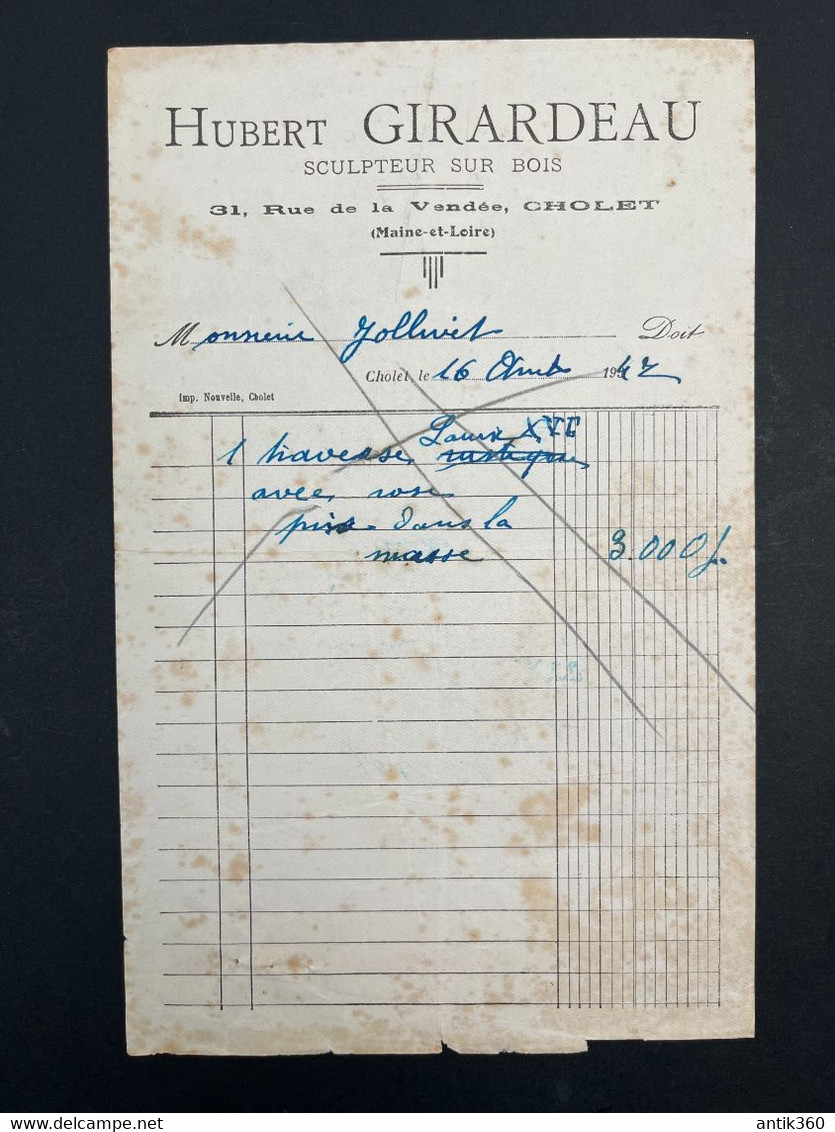 HUBERT GIRARDEAU
SCULPTEUR SUR BOIS
31, Rue de la Vendée, CHOLET
(Maine-et-Loire)
Monsieur Jollivet Doit
Cholet, le 16 1947
Imp. Nouvelle, Cholet
Louis XVI
1 traverse rustique
avec rose
prise dans la
masse 3.000 f.
www.delcampe.net
antik360